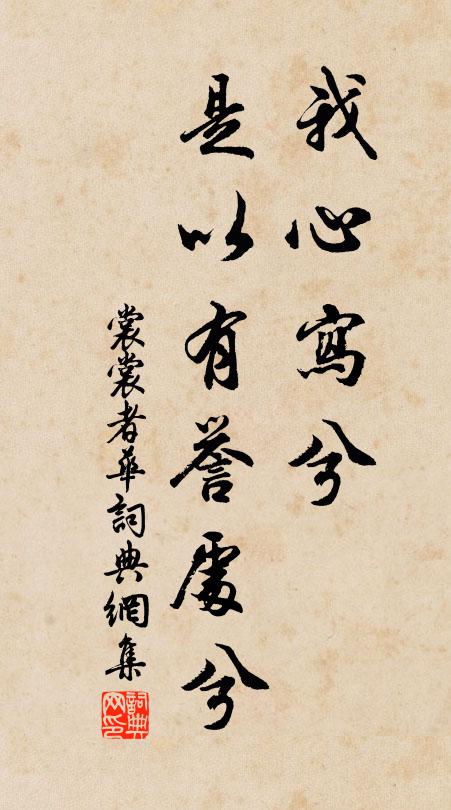 我心寫兮
是以有譽處兮
裳裳者華詞典網集
詞典网印